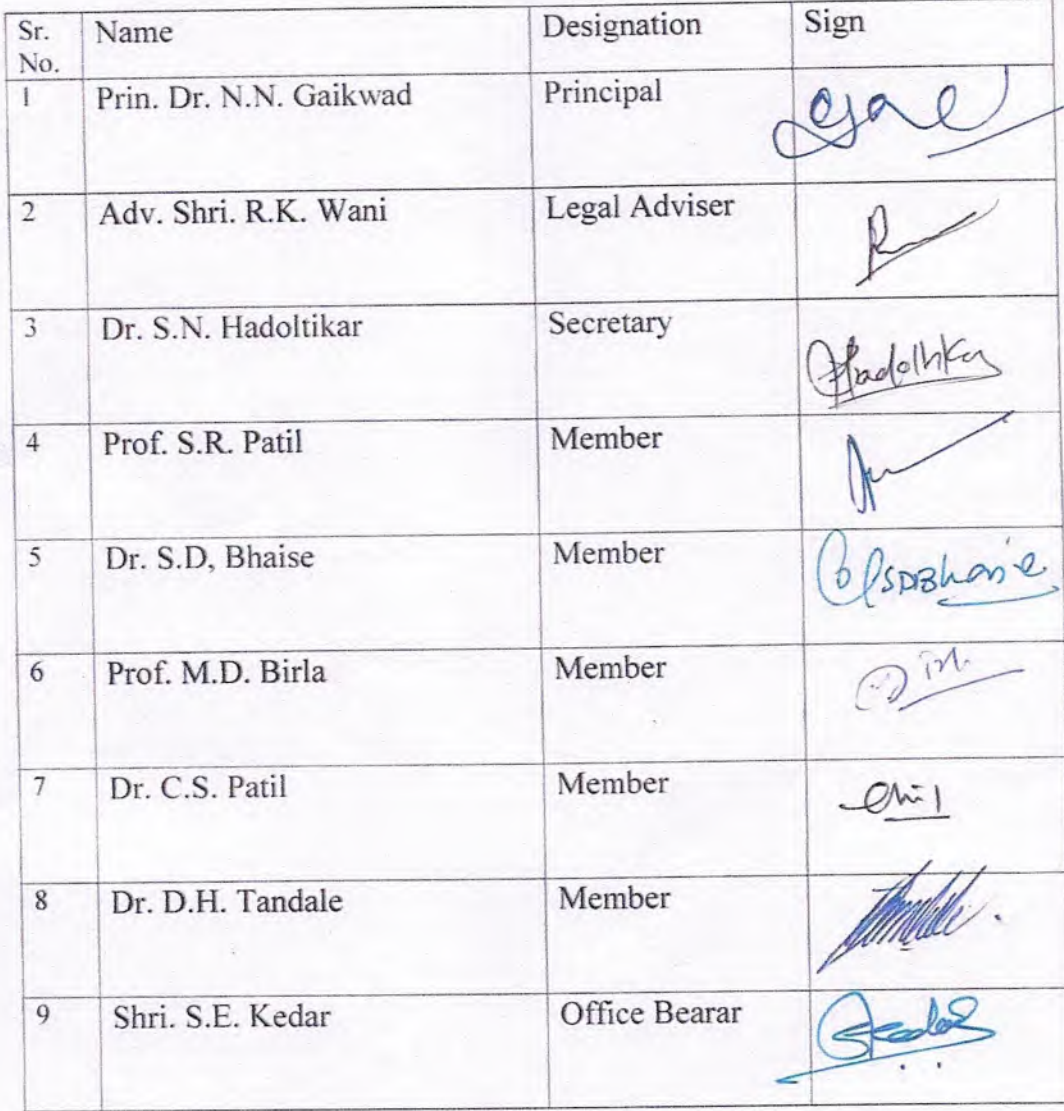 Sr. No. Name Designation Sign
1 Prin. Dr. N.N. Gaikwad Principal
2 Adv. Shri. R.K. Wani Legal Adviser
3 Dr. S.N. Hadoltikar Secretary
4 Prof. S.R. Patil Member
5 Dr. S.D, Bhaise Member
6 Prof. M.D. Birla Member
7 Dr. C.S. Patil Member
8 Dr. D.H. Tandale Member
9 Shri. S.E. Kedar Office Bearar